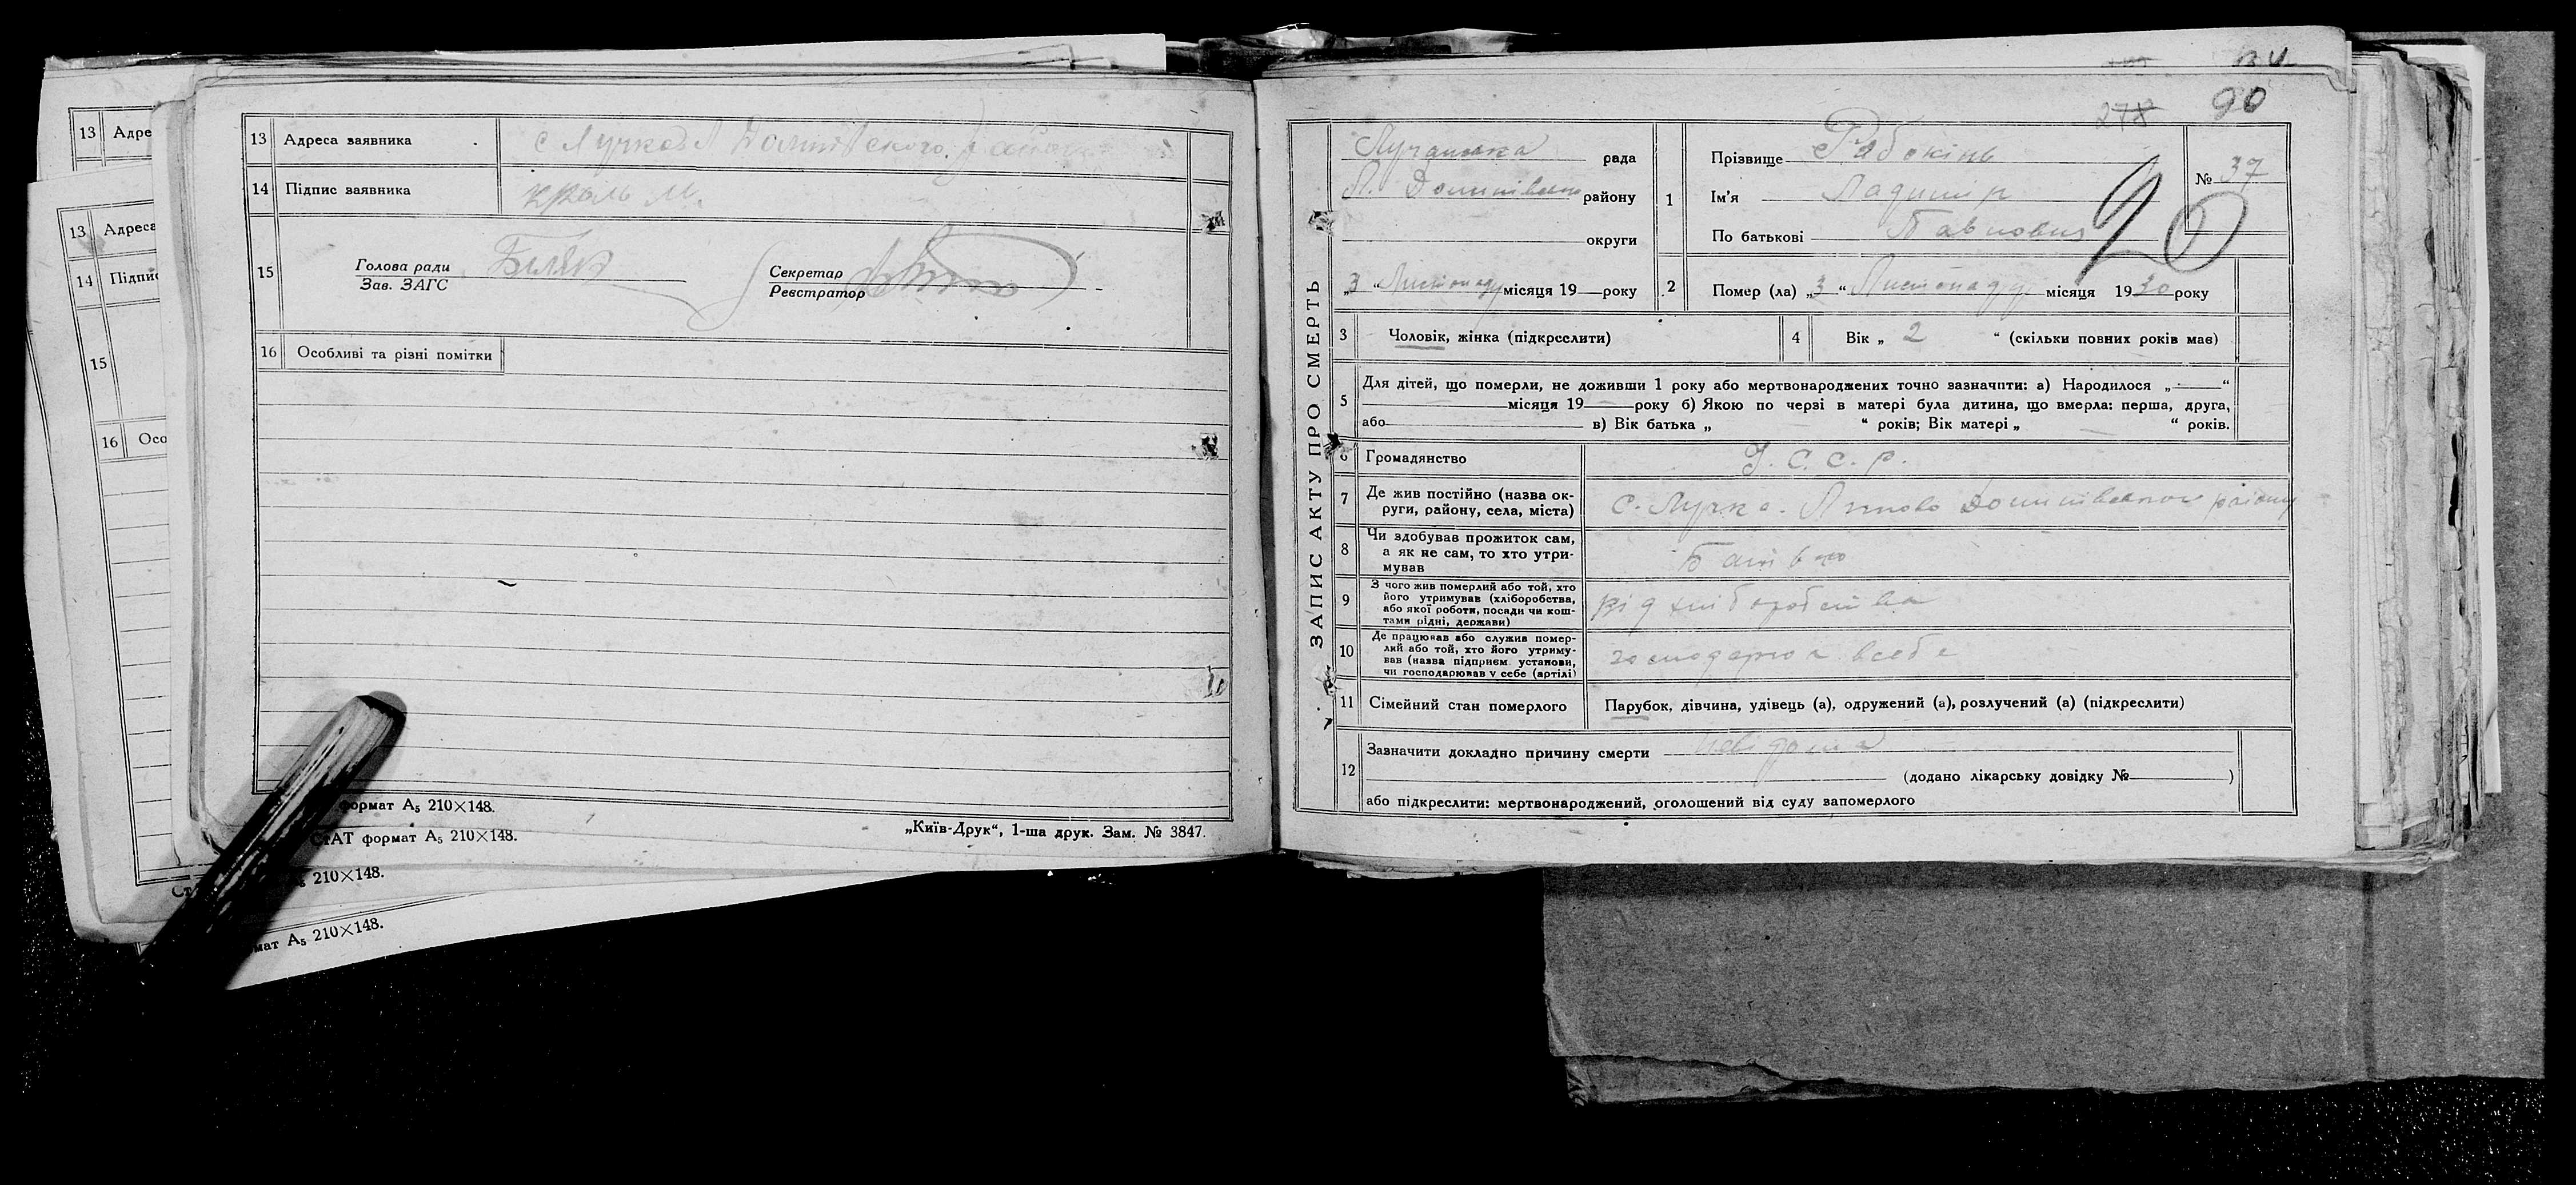 13 Адре
13 Адреса
14 Підпис
15
16 Осо
13 Адреса заявника с Лучка
14 Підпис заявника Кроль М.
15 Голова ради Біляв
Зав. ЗАГС
Секретар
Реєстратор
16 Особливі та різні помітки
формат А5 210×148.
СтАТ формат А5 210×148.
„Київ-Друк“, 1-ша друк. Зам. № 3847.
210×148.
мат А5 210×148.
278
90
ЗАПИС АКТУ ПРО СМЕРТЬ
Лучанська рада
району
округи
„3“ Листопаду місяця 19 року
1 Прізвище Рабокінь
Ім'я Ладимір
По батькові Павлович
№ 37
20
2 Помер (ла) „3“ Листопаду місяця 1930 року
3 Чоловік, жінка (підкреслити)
4 Вік „ 2 “ (скільки повних років має)
5 Для дітей, що померли, не доживши 1 року або мертвонароджених точно зазначити: а) Народилося „ “
місяця 19 року б) Якою по черзі в матері була дитина, що вмерла: перша, друга,
або в) Вік батька „ “ років; Вік матері „ “ років.
6 Громадянство У.С.С.Р.
7 Де жив постійно (назва ок-
руги, району, села, міста) с. Лучка. району
8 Чи здобував прожиток сам,
а як не сам, то хто утри-
мував Батько
9 З чого жив померлий або той, хто
його утримував (хліборобства,
або якої роботи, посади чи кош-
тами рідні, держави) від хліборобства
10 Де працював або служив помер-
лий або той, хто його утриму-
вав (назва підприєм. установи,
чи господарював у себе (артілі) господарюа всебе
11 Сімейний стан померлого Парубок, дівчина, удівець (а), одружений (а), розлучений (а) (підкреслити)
12 Зазначити докладно причину смерти невідома
(додано лікарську довідку № )
або підкреслити: мертвонароджений, оголошений від суду запомерлого